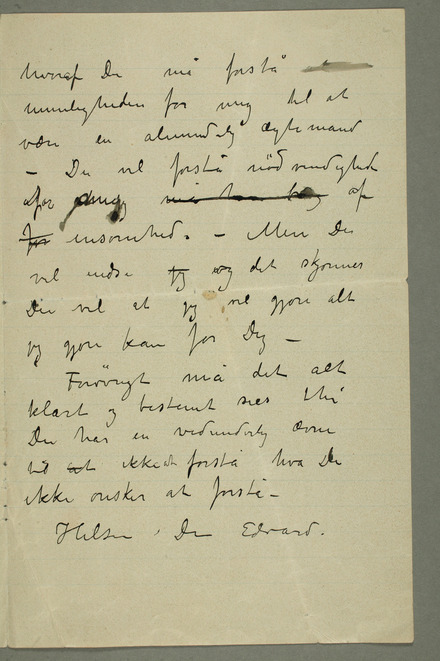 hvoraf Du må forstå
umuligheden for mig til at
være en almindelig ægtemand
– Du vil forstå nødvendigheden
for mig af
for ensomhed. – Men Du
vil endse jeg og det skjønner
Du vil at jeg vil gjøre alt
jeg gjøre kan for Dig –
Forøvrigt må det alt
klart og bestemt sies thi
Du har en vidunderlig ævne
til at ikke at forstå hva Du
ikke ønsker at forstå –
Hilsen, Din Edvard.